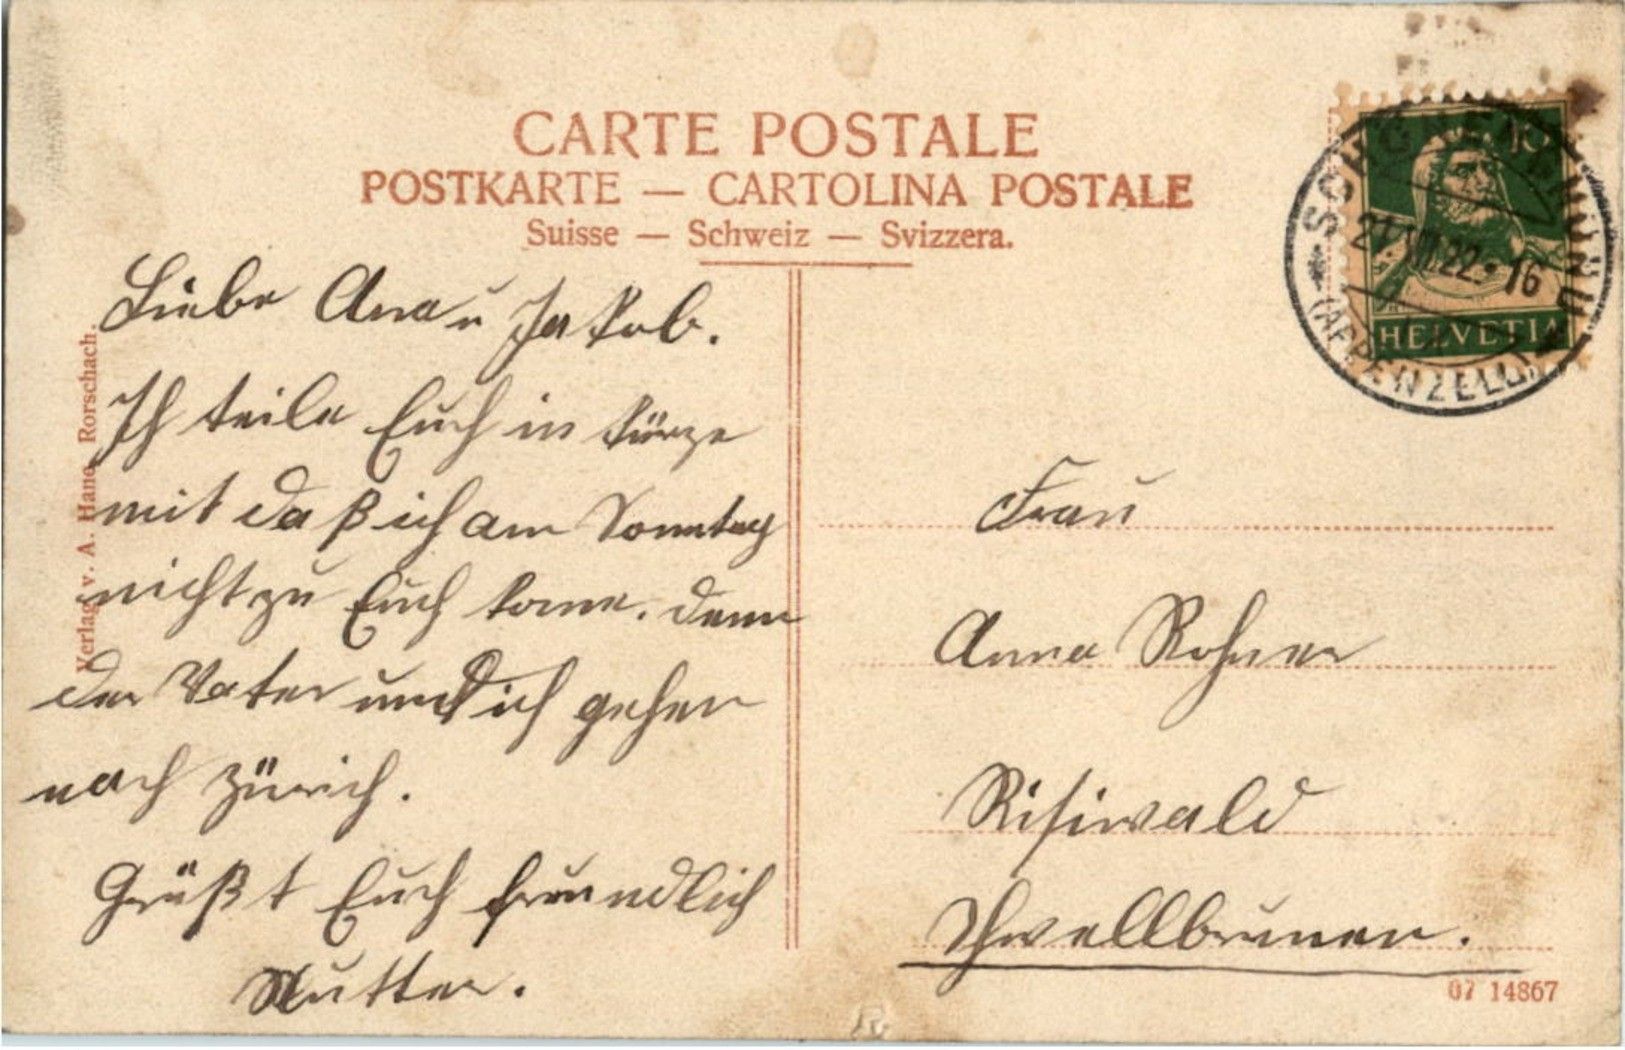 CARTE POSTALE
POSTKARTE — CARTOLINA POSTALE
Suisse — Schweiz — Svizzera.
SCHÖNENGRUND
21.VIII.22 - 16
(APPENZELL)
10
HELVETIA
Verlag v. A. Hane, Rorschach.
Liebe Anna u Jakob.
Ich teile Euch in kürze
mit daß ich am Sonntag
nicht zu Euch kome. denn
der Vater und ich gehen
nach Zürich.
Grüßt Euch freundlich
Mutter.
Frau
Anna Rohner
Risiwald
Schwellbrunnen.
07 14867